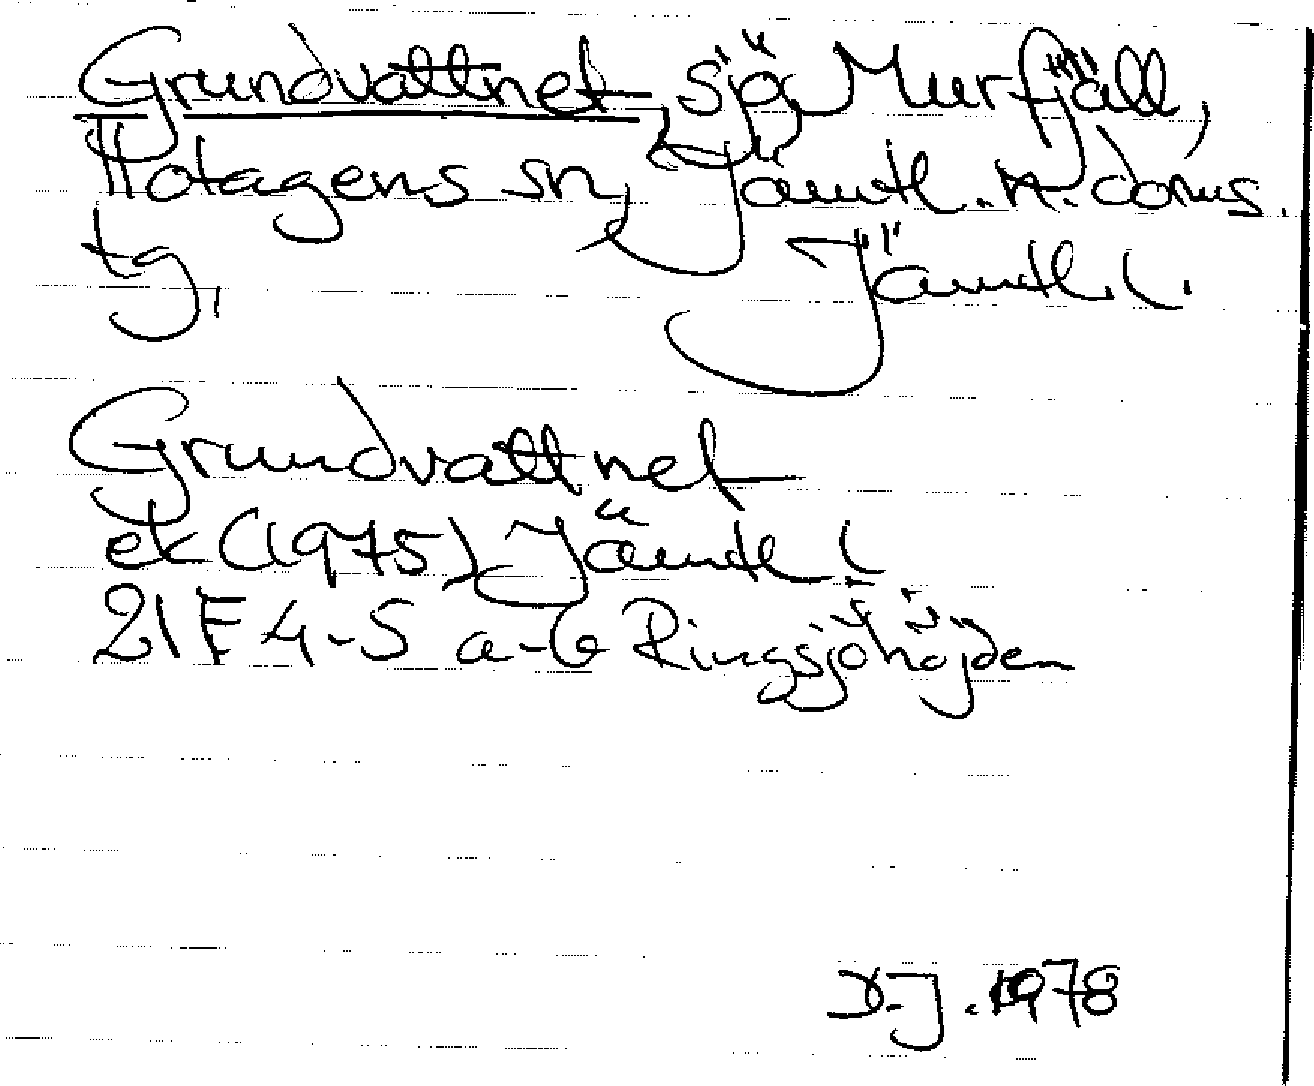 Grundvattnet, sjö, Murfjäll,
Hotagens sn, Jämtl. n. doms.
tg, Jämtl. l.
Grundvattnet
ek (1975) Jämtl l
21F 4-5 a-b Ringsjöhöjden
D.J. 1978